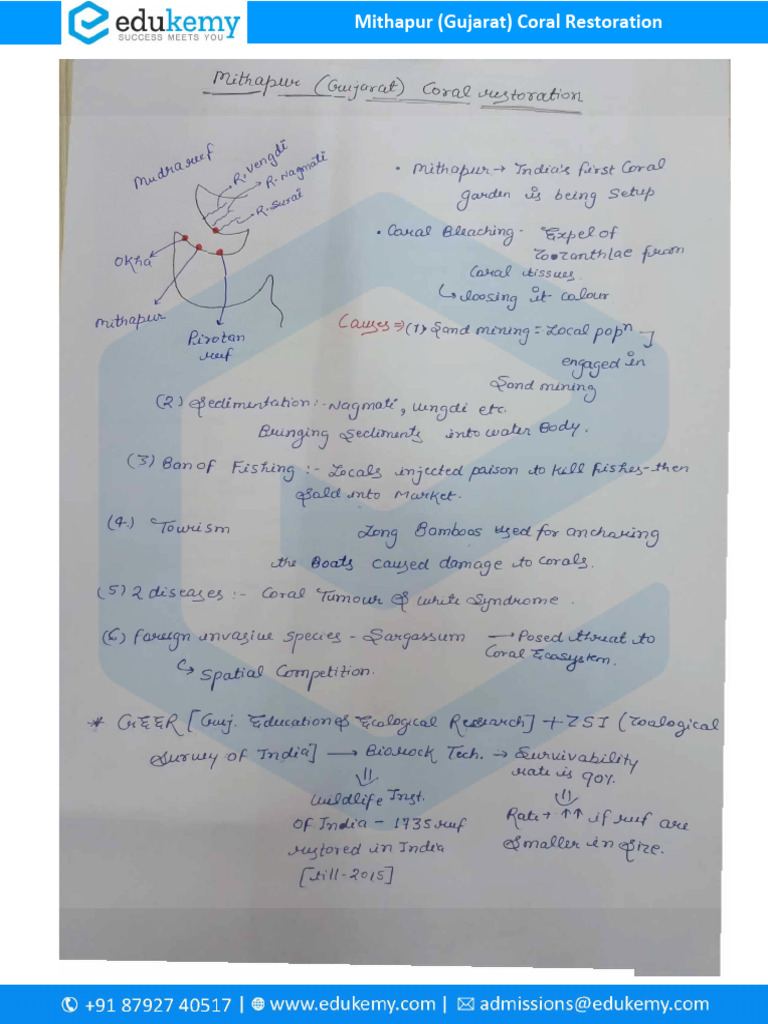 edukemy
SUCCESS MEETS YOU
Mithapur (Gujarat) Coral Restoration
Mithapur (Gujarat) Coral restoration
Mudra reef
R. Vengdi
R. Nagmati
R. Surai
Okha
Mithapur
Pirotan
reef
• Mithapur → India's first Coral
garden is being setup
• Coral Bleaching - Expel of
Zooxanthlae from
Coral tissues.
↳ loosing it colour
Causes ⇒ (1) Sand mining = Local popn
engaged in
Sand mining
(2) Sedimentation :- Nagmati, Vengdi etc.
Bringing Sediments into water Body.
(3) Ban of Fishing :- Locals injected poison to kill fishes - then
Sold into Market.
(4.) Tourism Long Bamboos used for anchoring
the Boats caused damage to corals.
(5) 2 diseases :- Coral Tumour & White Syndrome.
(6) foreign invasive species - Sargassum → Posed threat to
Coral Ecosystem.
↳ Spatial Competition.
* GEER [Guj. Education & Ecological Research] + ZSI (Zoological
Survey of India] → Biorock Tech. → Survivability
rate is 90%.
⇓
Wildlife Inst.
Of India - 1735 reef
restored in India
[till-2015]
⇓
Rate ↑↑ if reef are
Smaller in Size.
+91 87927 40517 | www.edukemy.com | admissions@edukemy.com